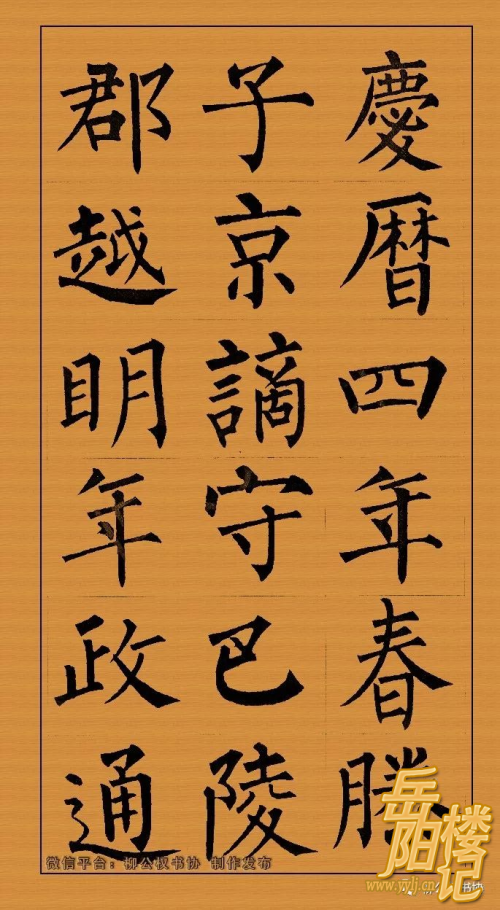 慶曆四年春滕
子京謫守巴陵
郡越明年政通
微信平台：柳公权书协 制作发布
岳阳楼记
www.yylj.cn